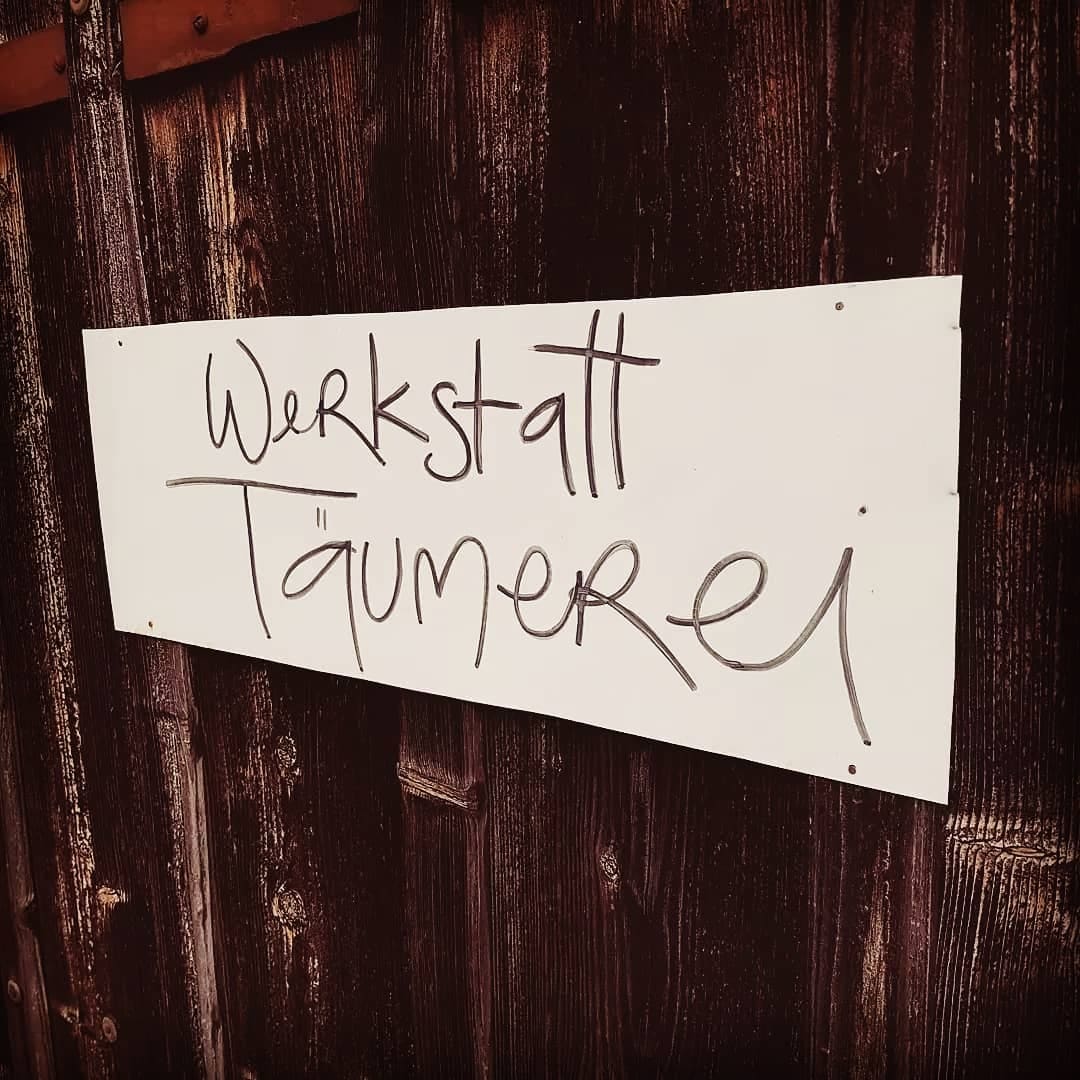 Werkstatt
Täumerei